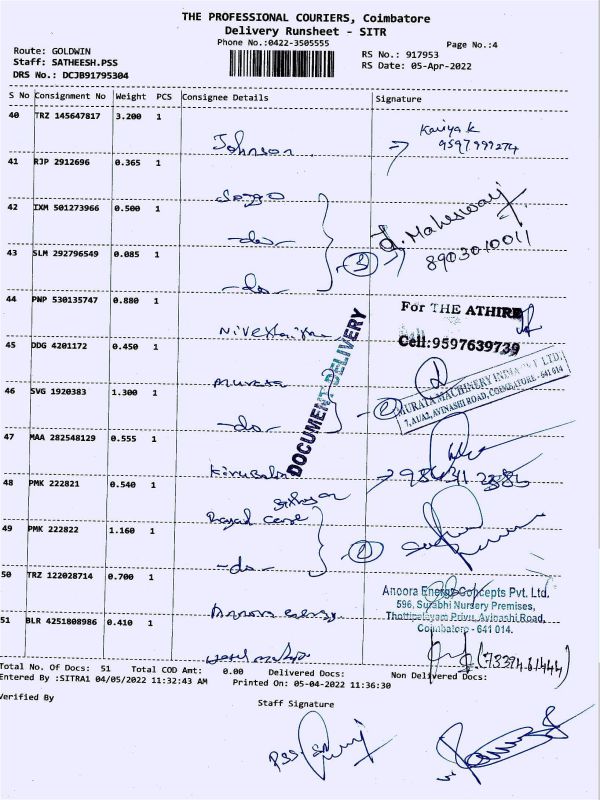 THE PROFESSIONAL COURIERS, Coimbatore
Delivery Runsheet - SITR
Phone No.:0422-3505555
Page No.:4
Route: GOLDWIN
Staff: SATHEESH.PSS
DRS No.: DCJB91795304
RS No.: 917953
RS Date: 05-Apr-2022
S No Consignment No Weight PCS Consignee Details Signature
40 TRZ 145647817 3.200 1
Johnson
9597999274
41 RJP 2912696 0.365 1
42 IXM 501273966 0.500 1
-do-
3
D. Maheswari
8903010011
43 SLM 292796549 0.085 1
-do-
44 PNP 530135747 0.880 1
For THE ATHIRA
Cell:9597639739
DOCUMENT DELIVERY
45 DDG 4201172 0.450 1
MURATA MACHINERY INDIA PVT. LTD.
7, AUA2, AVINASHI ROAD, COIMBATORE - 641 014
46 SVG 1920383 1.300 1
-do-
47 MAA 282548129 0.555 1
48 PMK 222821 0.540 1
49 PMK 222822 1.160 1
-do-
50 TRZ 122028714 0.700 1
Anoora Energy Concepts Pvt. Ltd.
596, Surabhi Nursery Premises,
Thottipalayam Privu, Avinashi Road,
Coimbatore - 641 014.
Annora energy
51 BLR 4251808986 0.410 1
Total No. Of Docs: 51 Total COD Amt: 0.00 Delivered Docs: Non Delivered Docs:
Entered By :SITRA1 04/05/2022 11:32:43 AM Printed On: 05-04-2022 11:36:30
Verified By
Staff Signature
PSS